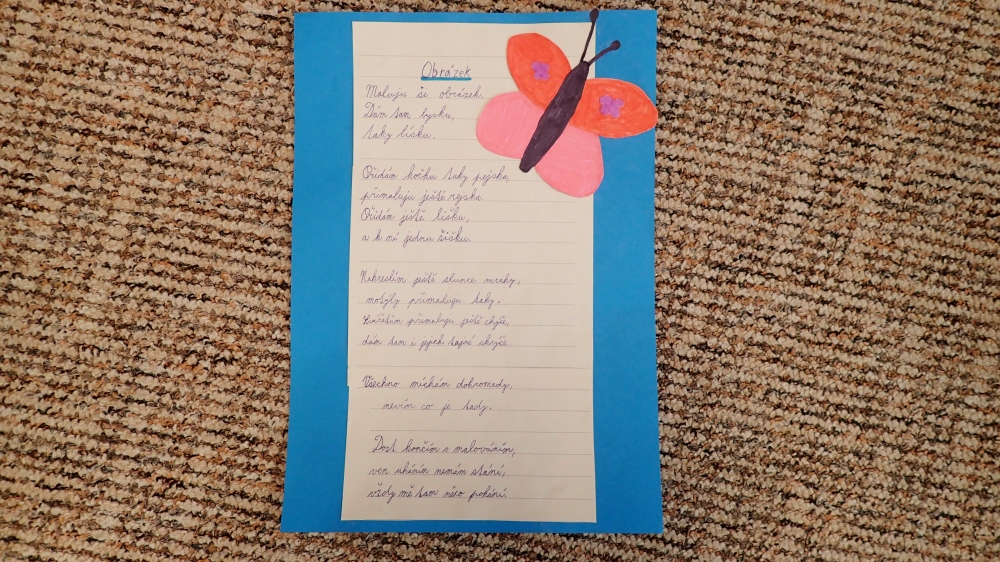 Obrázek
Maluju si obrázek.
Dám tam bysku,
taky lísku.
Přidám kočku taky pejska,
přimaluju ještě rejska.
Přidám ještě lišku,
a k ní jednu šišku.
Nakreslím ještě slunce mraky,
motýly přimaluju taky.
Zvířatům přimaluju ještě chýše,
dám tam i jejich tajné skrýše.
Všechno míchám dohromady,
nevím co je tady.
Dost končím s malováním,
ven utíkám nemám stání,
vždy mě tam něco pohání.